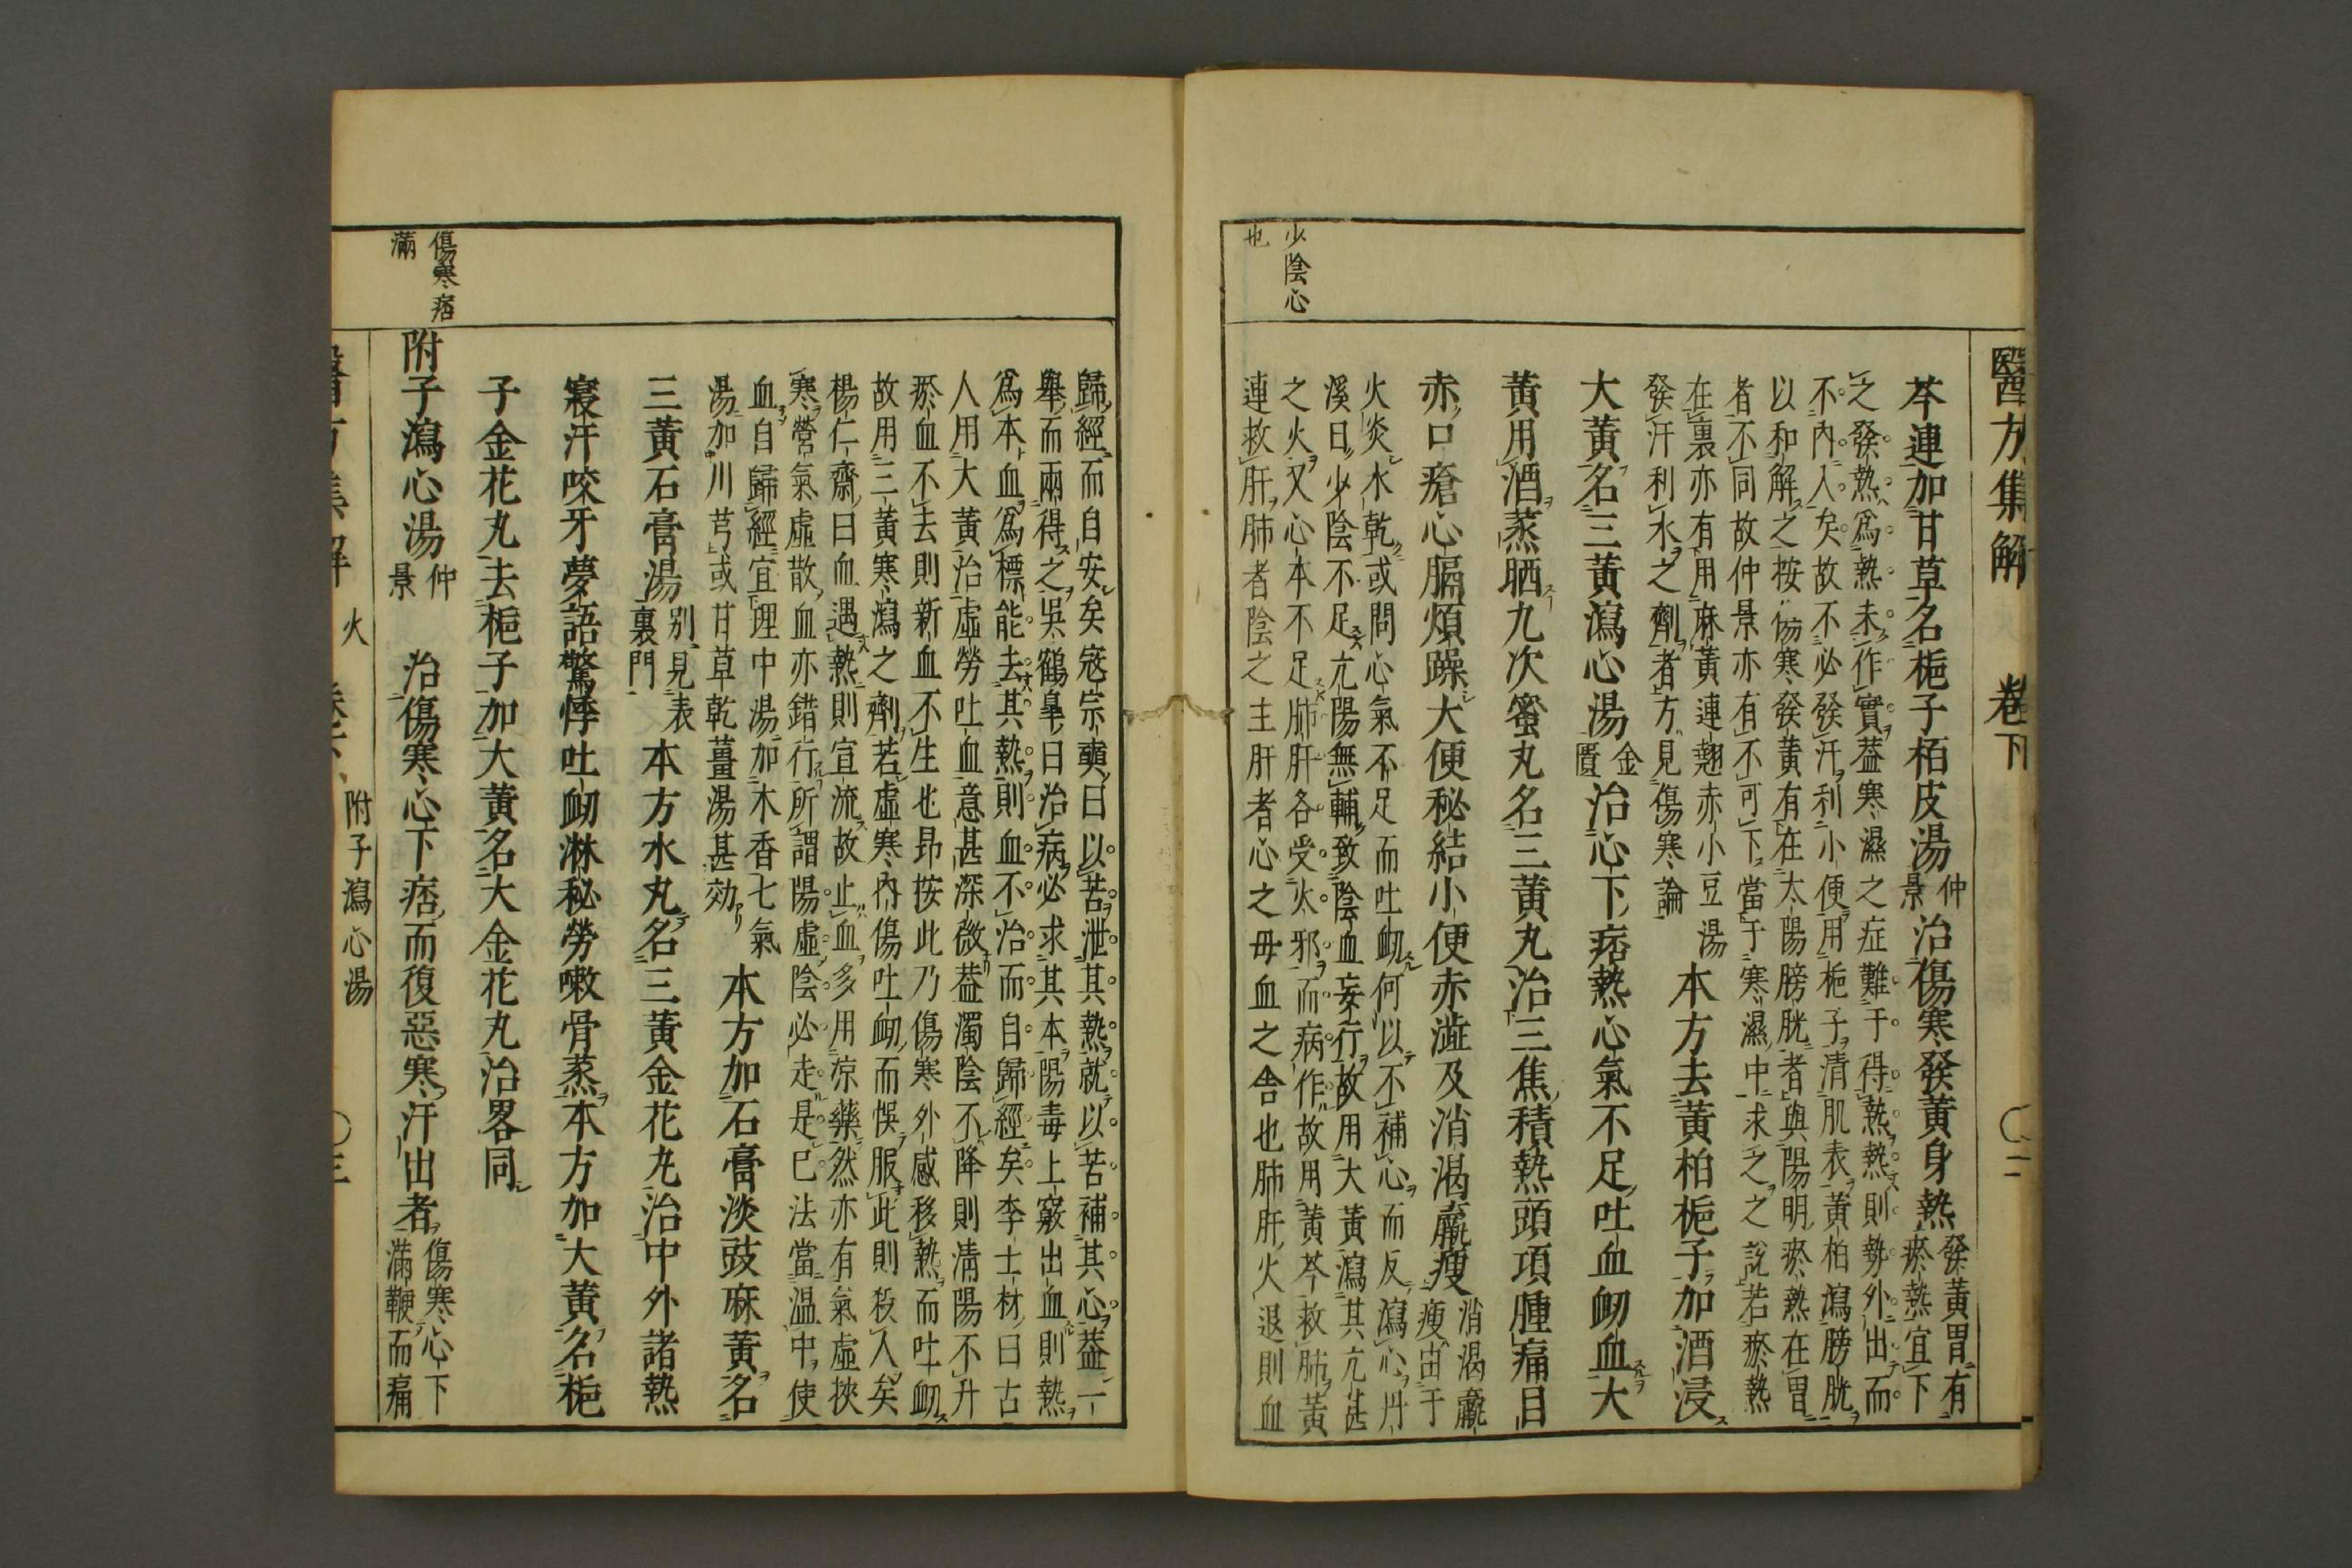 醫方集解 卷下 〇二
芩連加甘草名梔子栢皮湯
仲
景
治傷寒發黃身熱
發黃胃有
瘀熱宜下
之發熱爲熱未作實葢寒濕之症難于得熱熱則勢外出而
不內入矣故不必發汗利小便用梔子清肌表黃柏瀉膀胱
以和解之按傷寒發黃有在太陽膀胱者與陽明瘀熱在胃
者不同故仲景亦有不可下當于寒濕中求之之說若瘀熱
在裏亦有用麻黃連翹赤小豆湯
發汗利水之劑者方見傷寒論
本方去黃柏梔子加酒浸
大黃名三黃瀉心湯
金
匱
治心下痞熱心氣不足吐血衂血大
黃用酒蒸晒九次蜜丸名三黃丸治三焦積熱頭項腫痛目
赤口瘡心膈煩躁大便秘結小便赤澁及消渴羸瘦
消渴羸
瘦由于
火炎水乾或問心氣不足而吐衂何以不補心而反瀉心丹
溪曰少陰不足亢陽無輔致陰血妄行故用大黃瀉其亢甚
之火又心本不足肺肝各受火邪而病作故用黃芩救肺黃
連救肝肺者陰之主肝者心之母血之舍也肺肝火退則血
少陰心
也
歸經而自安矣寇宗奭曰以苦泄其熱就以苦補其心葢一
舉而兩得之吳鶴臯曰治病必求其本陽毒上竅出血則熱
爲本血爲標能去其熱則血不治而自歸經矣李士材曰古
人用大黃治虛勞吐血意甚深微葢濁陰不降則清陽不升
瘀血不去則新血不生也昂按此乃傷寒外感移熱而吐衂
故用三黃寒瀉之劑若虛寒內傷吐衂而悞服此則殺人矣
楊仁齋曰血遇熱則宣流故止血多用涼藥然亦有氣虛挾
寒營氣虛散血亦錯行所謂陽虛陰必走是巳法當温中使
血自歸經宜理中湯加木香七氣
湯加川芎或甘草乾薑湯甚効
本方加石膏淡豉麻黃名
三黃石膏湯
別見表
裏門
本方水丸名三黃金花丸治中外諸熱
寢汗咬牙夢語驚悸吐衂淋秘勞嗽骨蒸本方加大黃名梔
子金花丸去梔子加大黃名大金花丸治畧同
附子瀉心湯
仲
景
治傷寒心下痞而復惡寒汗出者
傷寒心下
滿鞕而痛
傷寒痞
滿
醫方集解 火 附子瀉心湯 〇三